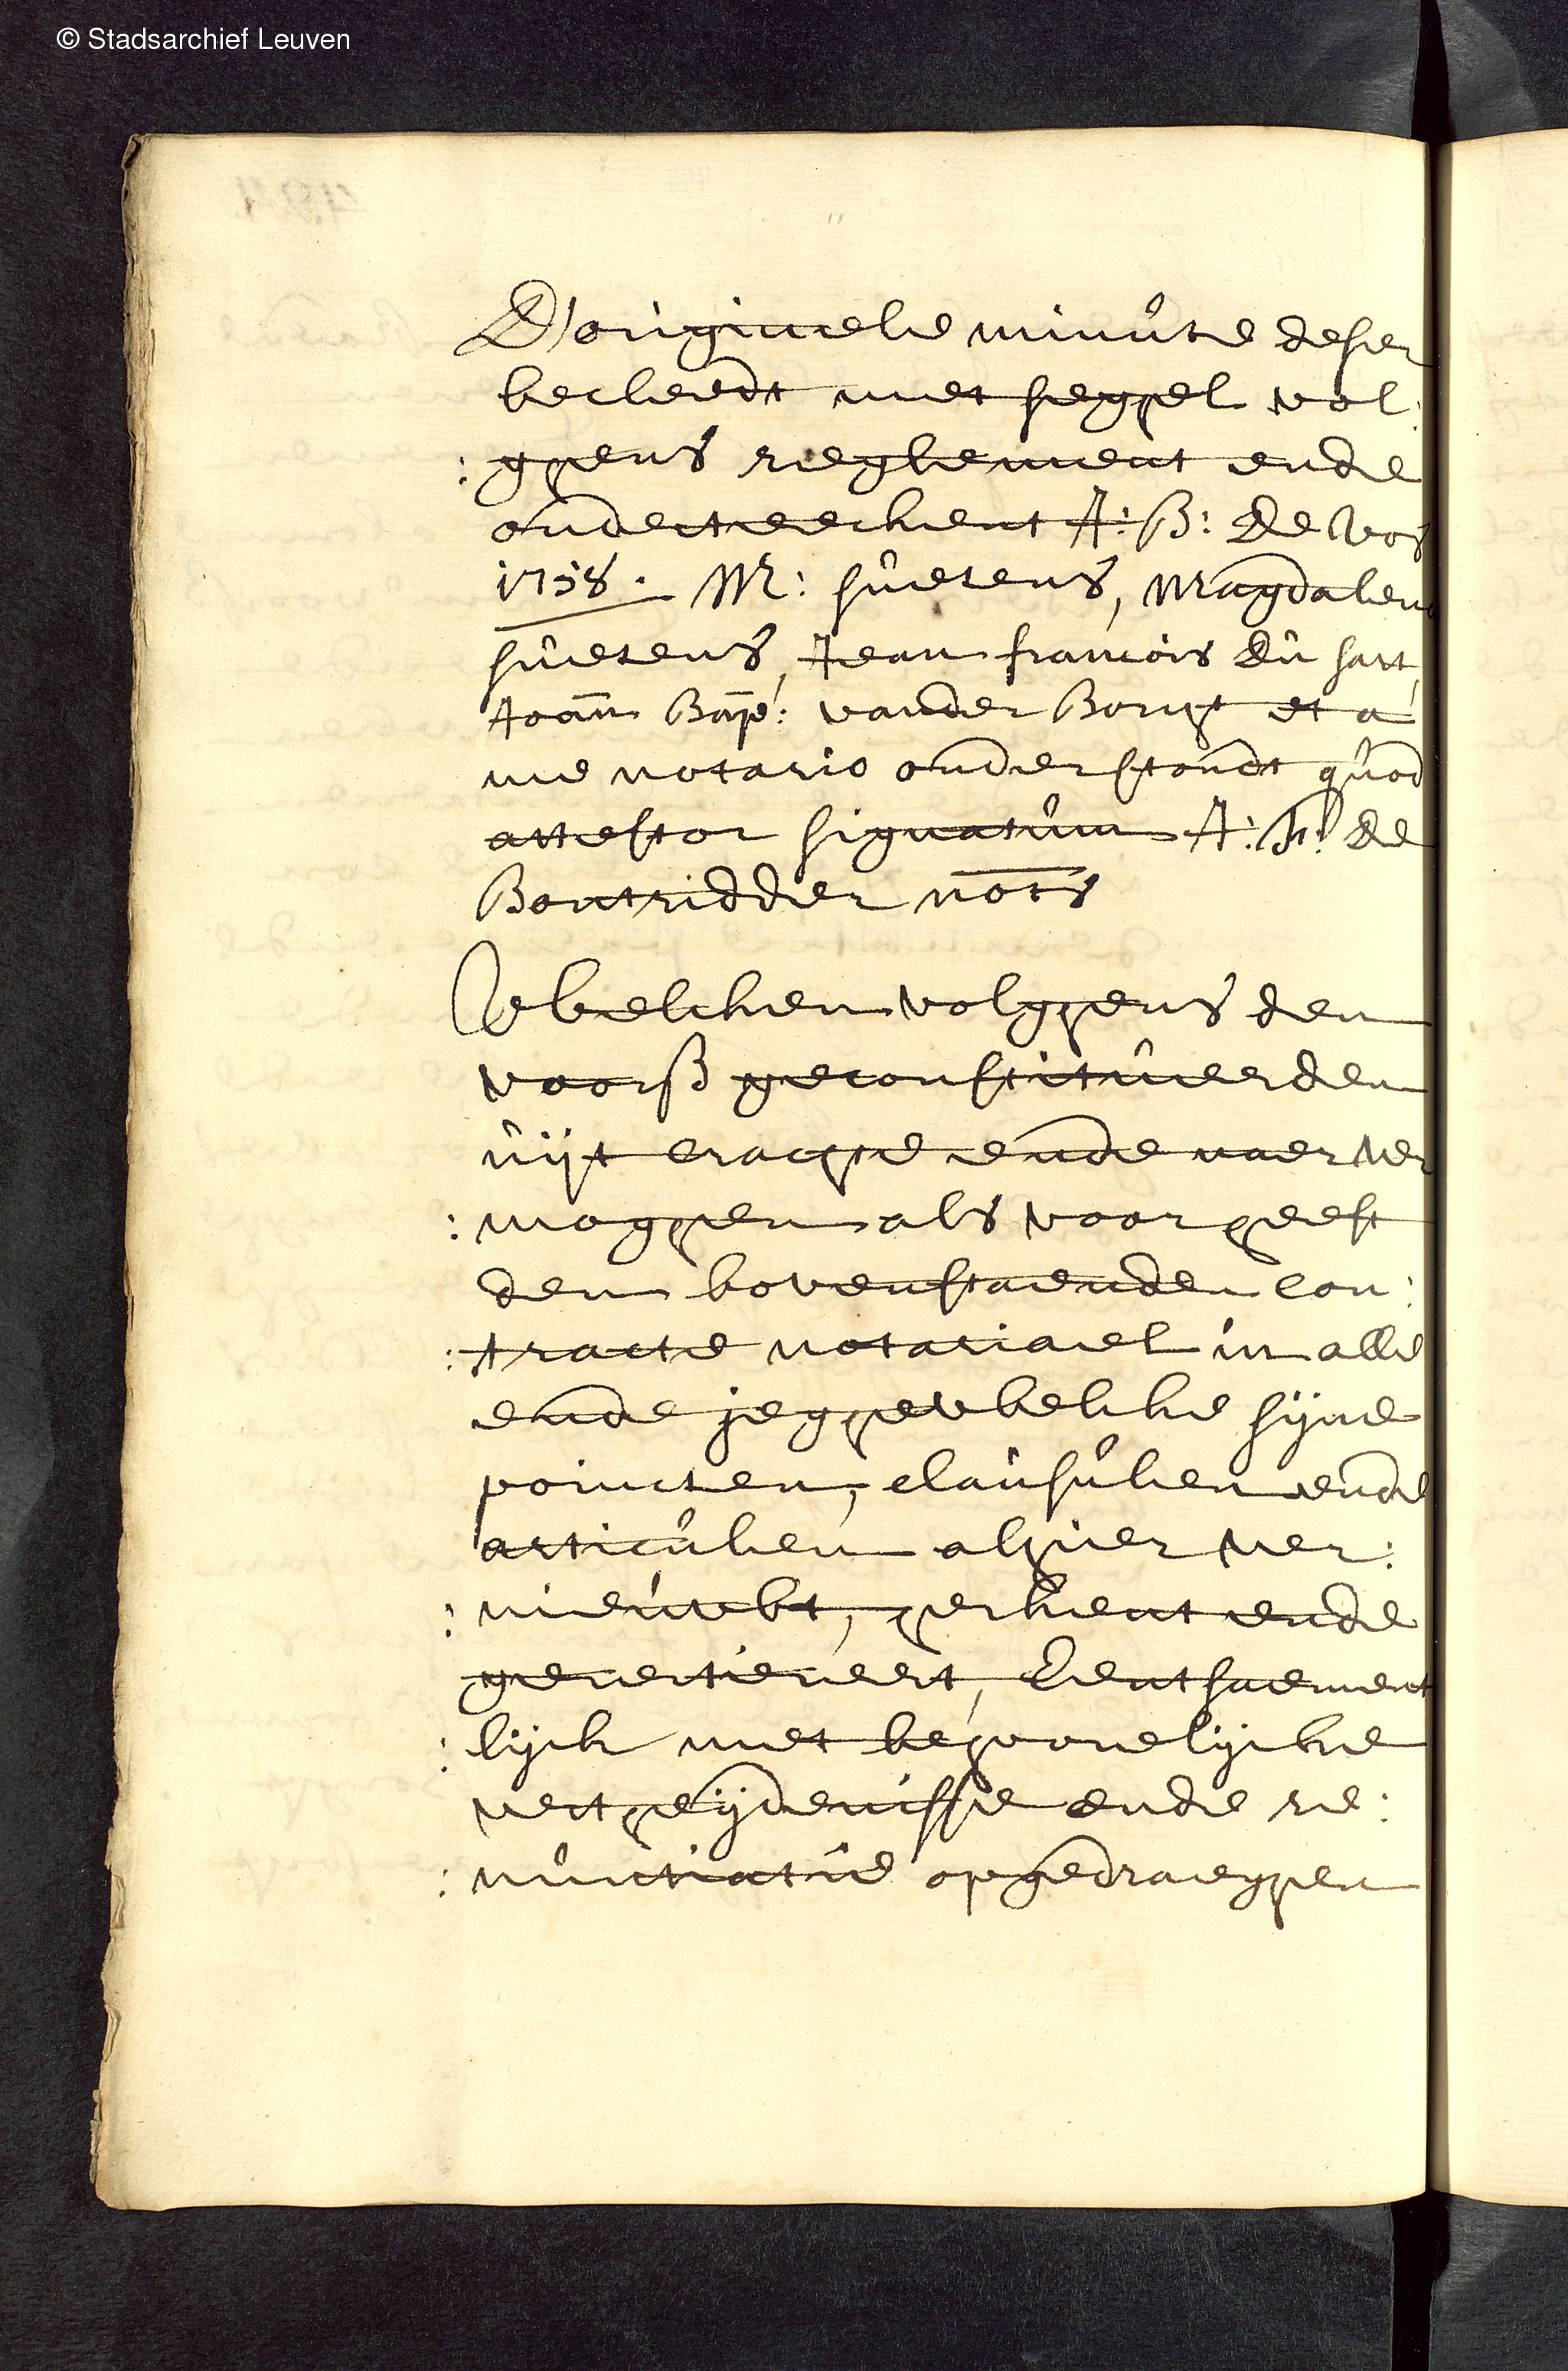 © Stadsarchief Leuven
D'originele minûte deser
becleedt met seghel vol:
:ghens reglement ende
onderteeckent J: B: De Vos
1758. M: sûetens, Magdalena
sûetens, Jean francois Dû sart,
Joan̄ Bap̄t: vander Borght et a
me notario onderstondt qûod
attestor signatûm J: F: De
Bontridder nots
Welcken volghens den
voors geconstitûeerden
ûijt crachte ende naer ver
:moghen als voor heeft
den bovenstaenden con:
:tracte notariael in alle
ende jeghewelcke sijne
poincten, claûsûlen ende
articûlen alhier ver:
:nieûwt, herkent ende
gevestieneert, Eentsaement
:lijck met behoorelijcke
vertheijdenisse ende re:
:nûntiatie opgedraeghen